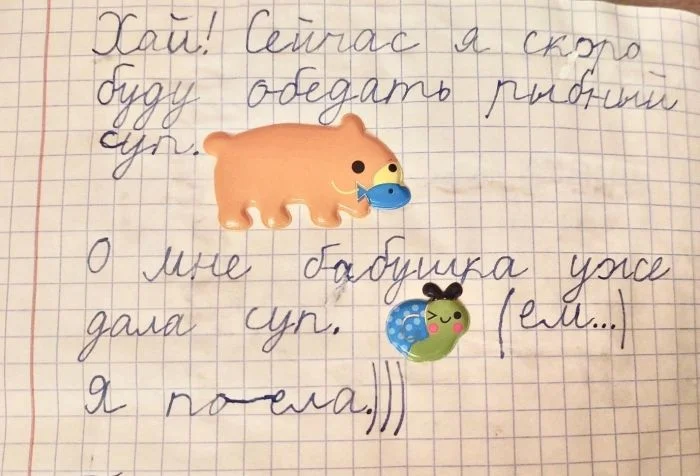 Хай! Сейчас я скоро
буду обедать рыбный
суп.
О мне бабушка уже
дала суп. (ем...)
Я по-ела.)))